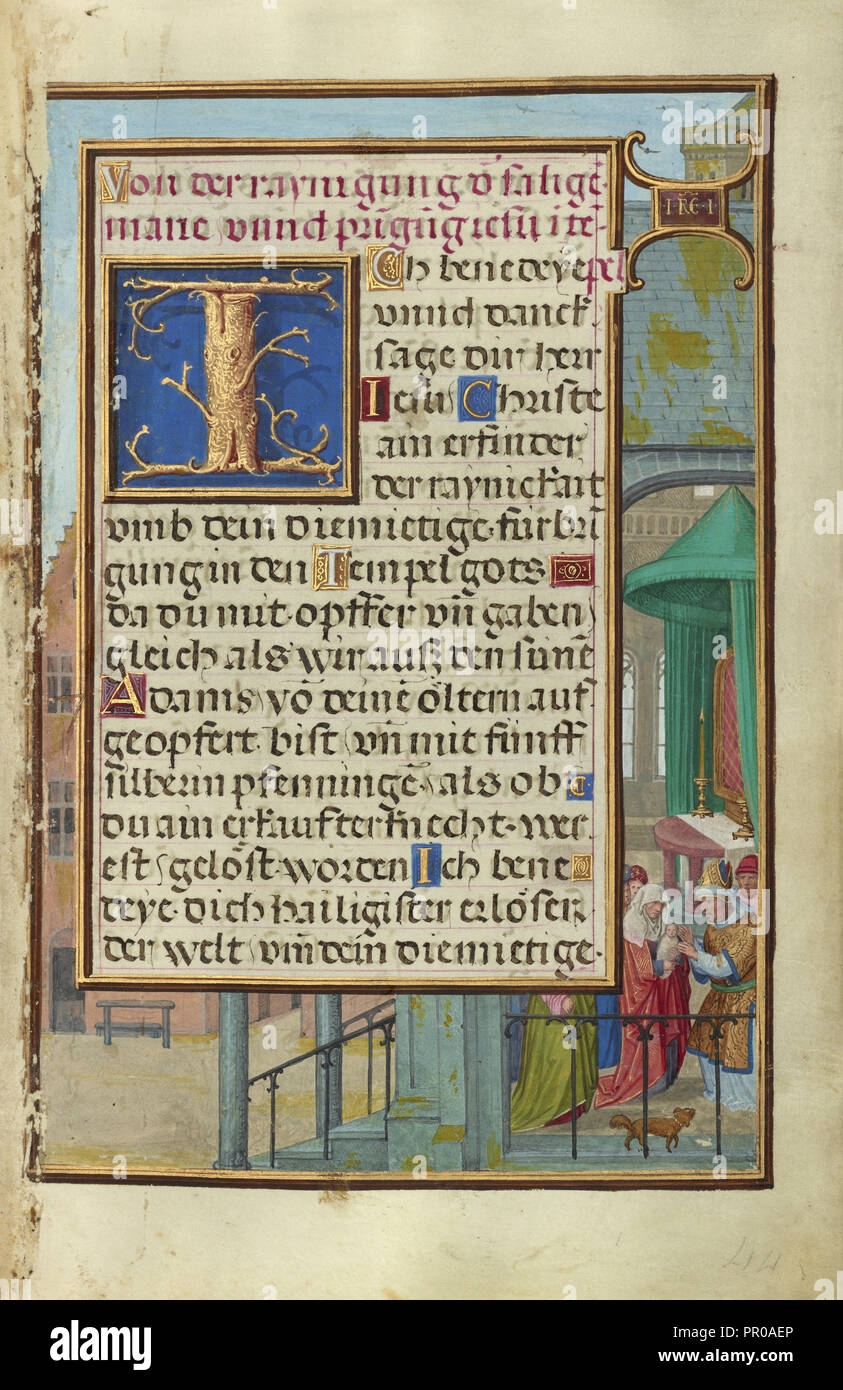 Von der raynigung d᷑ salige᷑
marie vnnd prīgūg iesu i tē-
ICh benedeye pel
vnnd danck
sage dir herr
Iesu Christe
ain erfinder
der raynickait
vmb dein diemietige fürbrī
gung in den Tempel gots
da du mit opffer vn̄ gaben
gleich als wir auß den sūnē
Adams vō deinē öltern auf
geopfert bist vn̄ mit fünff
silberin pfenningē als ob
du ain erkaufter knecht wer
est gelöst worden Ich bene
deye dich hailigister erlöser
der welt vm̄ deīn diemietige
44
alamy
alamy stock photo
PR0AEP
www.alamy.com